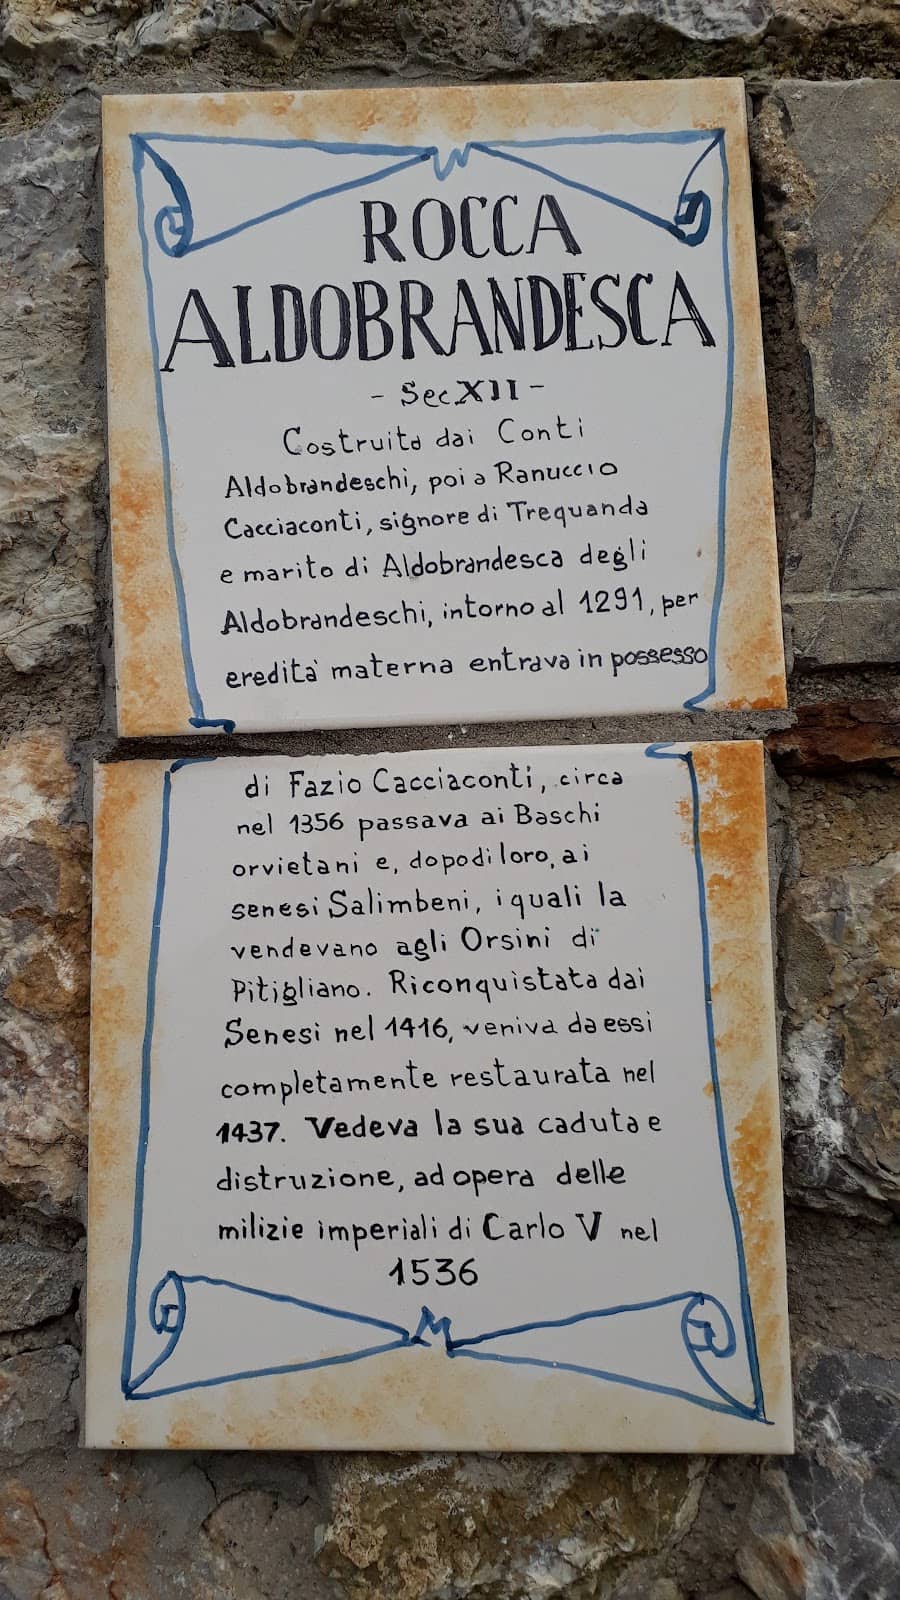 ROCCA
ALDOBRANDESCA
- Sec. XII -
Costruita dai Conti
Aldobrandeschi, poi a Ranuccio
Cacciaconti, signore di Trequanda
e marito di Aldobrandesca degli
Aldobrandeschi, intorno al 1291, per
eredità materna entrava in possesso
di Fazio Cacciaconti, circa
nel 1356 passava ai Baschi
orvietani e, dopo di loro, ai
senesi Salimbeni, i quali la
vendevano agli Orsini di
Pitigliano. Riconquistata dai
Senesi nel 1416, veniva da essi
completamente restaurata nel
1437. Vedeva la sua caduta e
distruzione, ad opera delle
milizie imperiali di Carlo V nel
1536